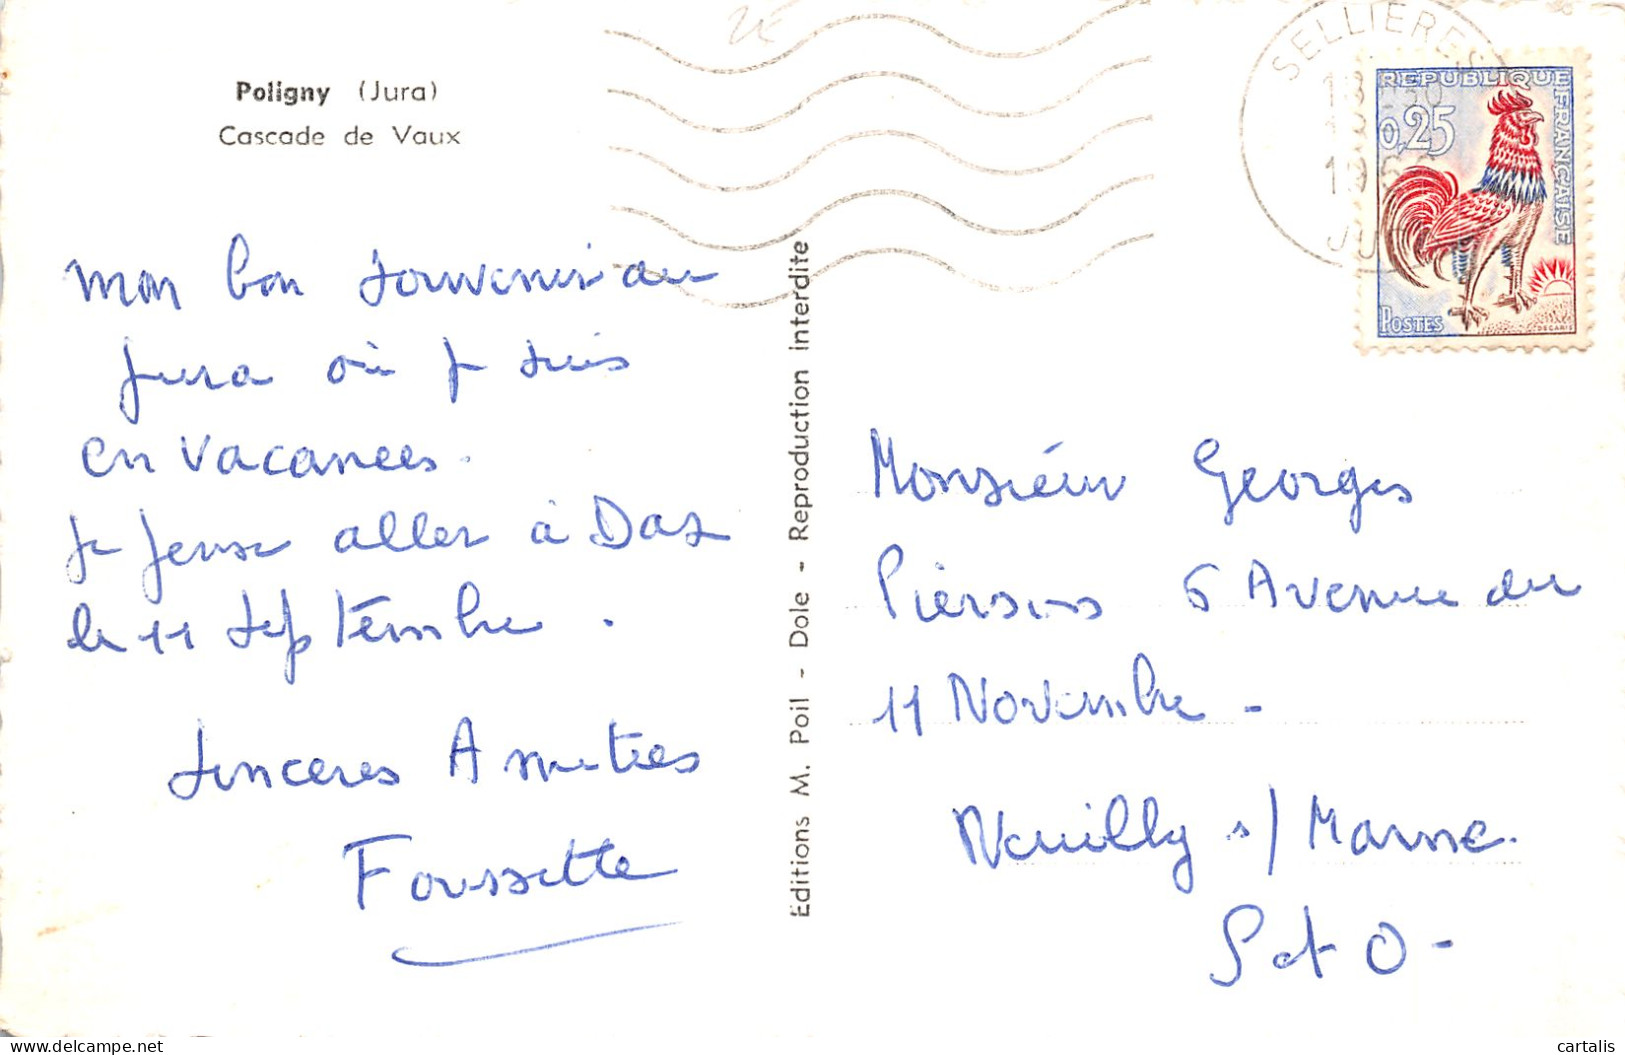 Poligny (Jura)
Cascade de Vaux
mon bon souvenir du
Jura où je suis
en vacances.
Je pense aller à Das
le 11 septembre.
Sincères Amitiés
Foussette
Editions M. Poil - Dole - Reproduction interdite
SELLIERES
JU
REPUBLIQUE
FRANÇAISE
0,25
POSTES
DECARIS
Monsieur Georges
Piersons 6 Avenue du
11 Novembre -
Neuilly s/ Marne.
S et O -
cartalis